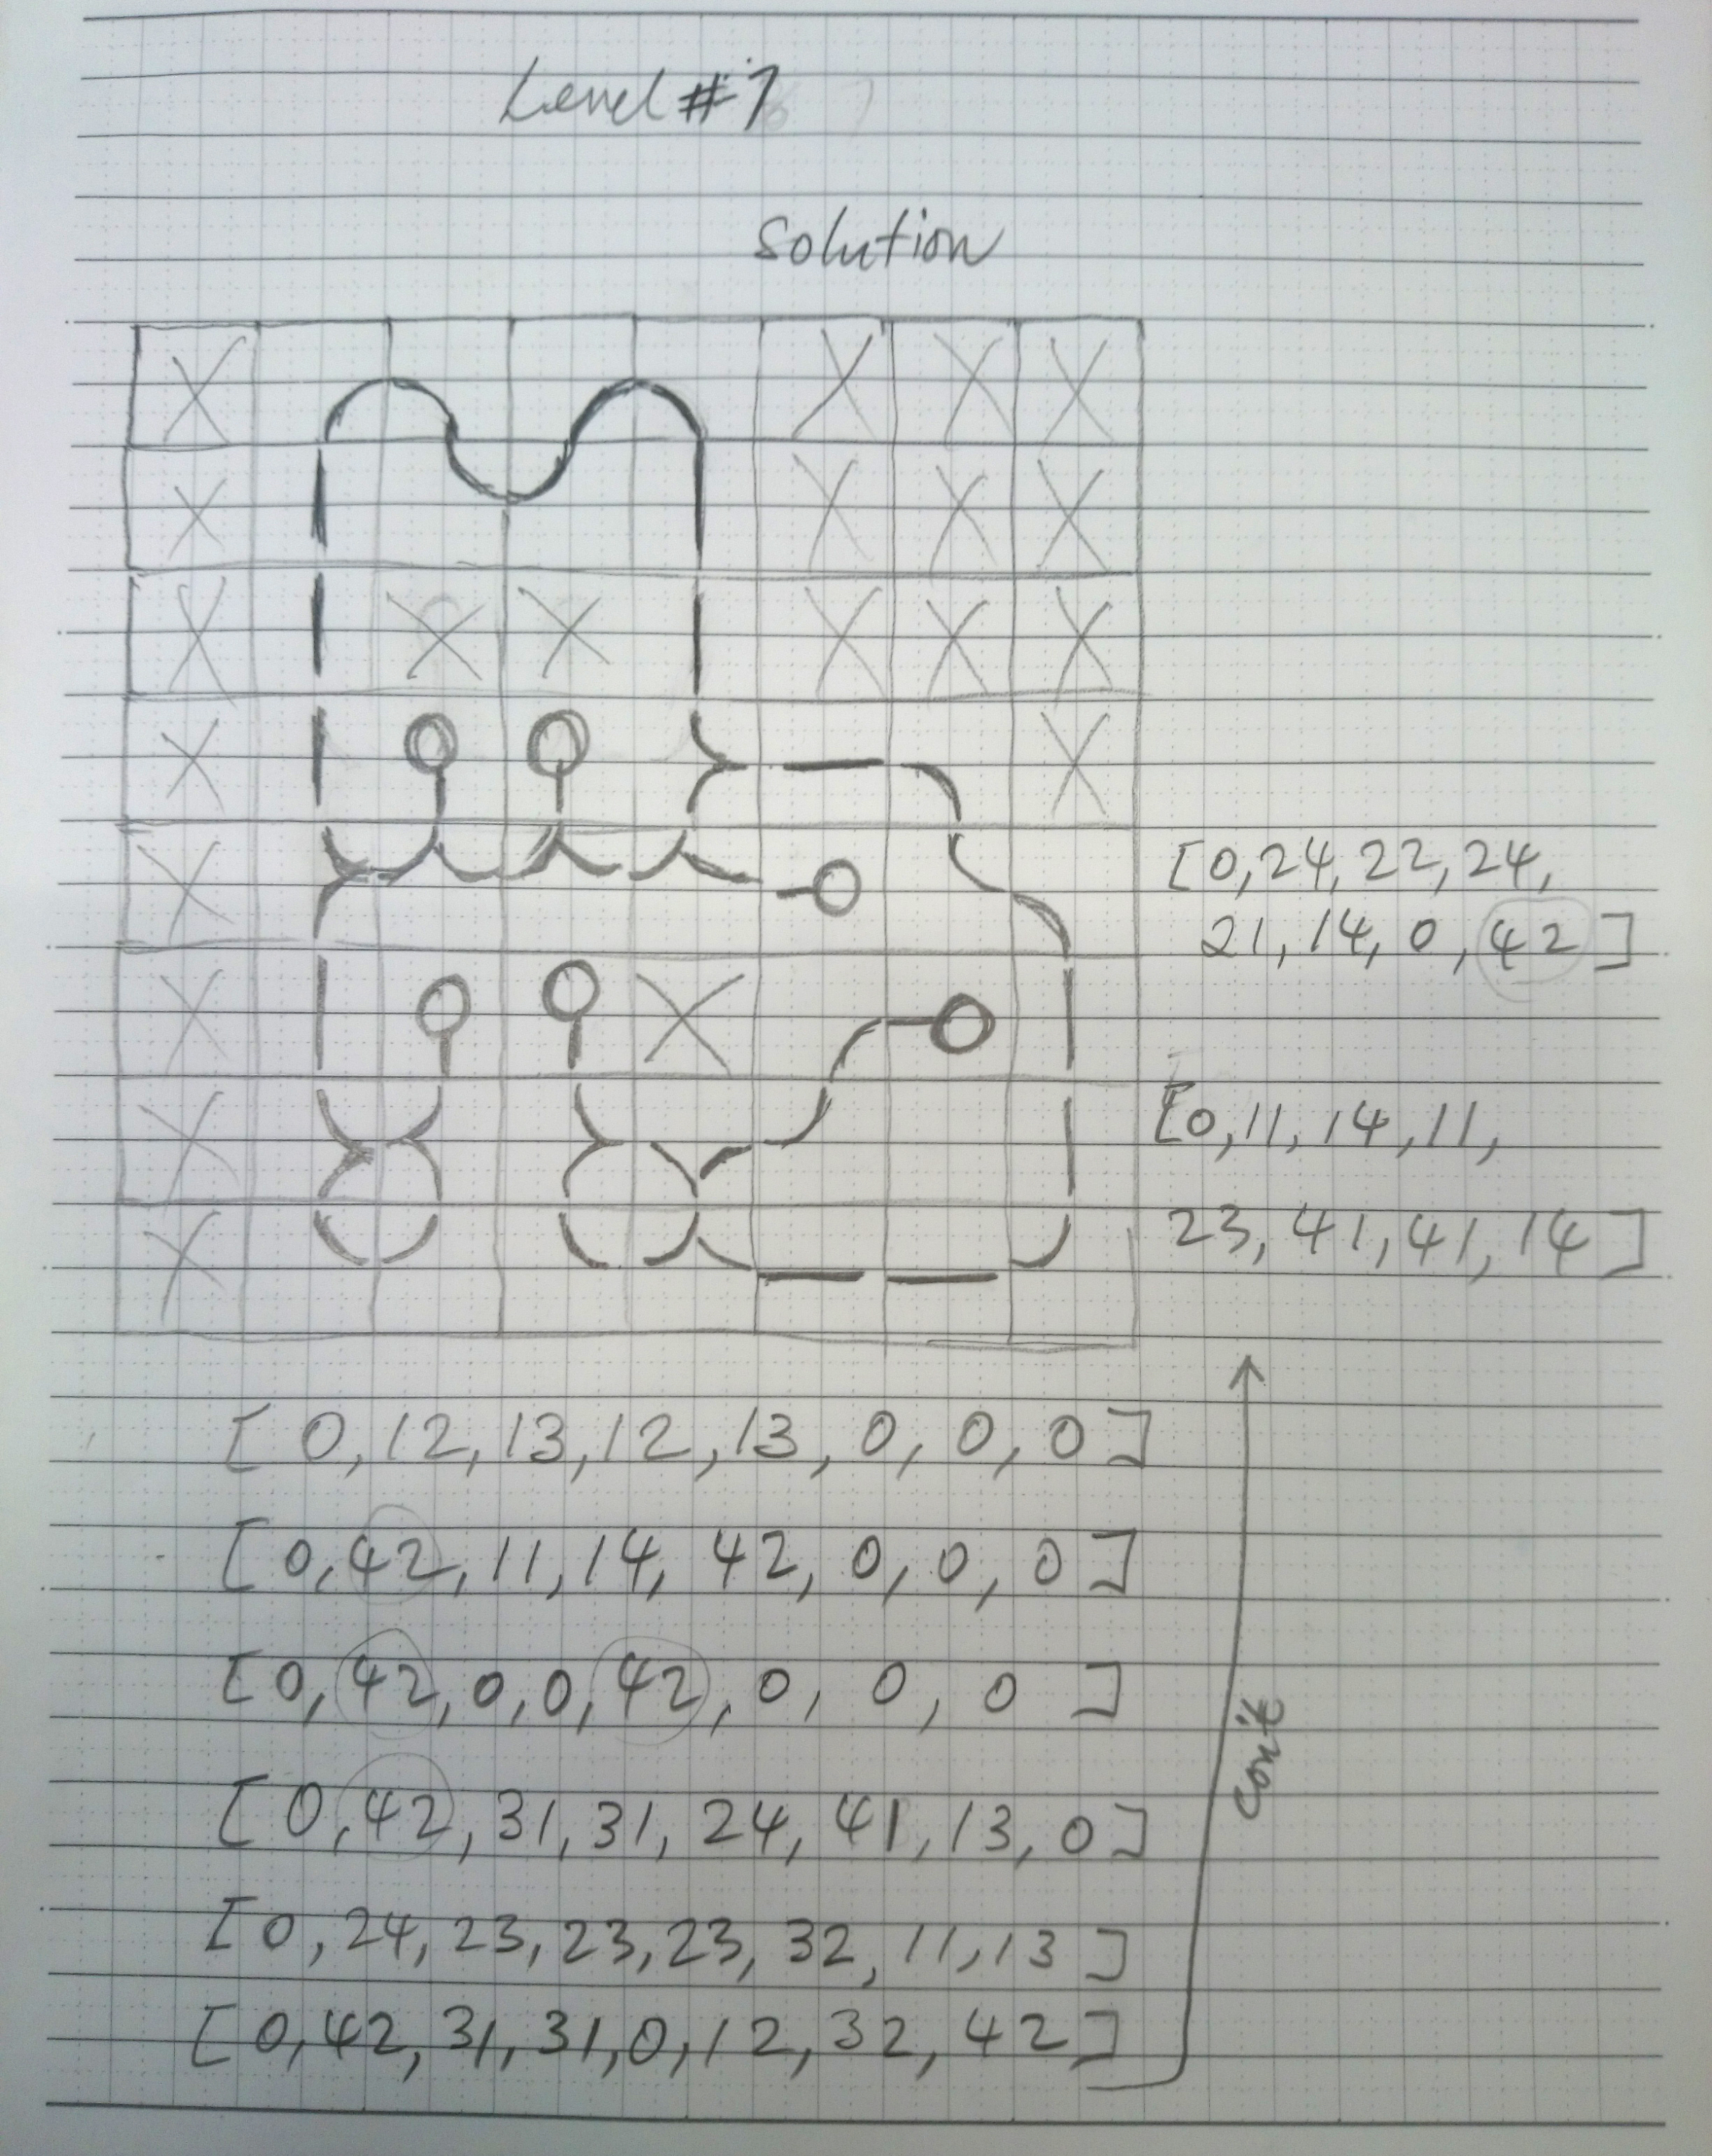 Level #7
Solution
[0, 24, 22, 24,
21, 14, 0, 42]
[0, 11, 14, 11,
23, 41, 41, 14]
[0, 12, 13, 12, 13, 0, 0, 0]
[0, 42, 11, 14, 42, 0, 0, 0]
[0, 42, 0, 0, 42, 0, 0, 0]
[0, 42, 31, 31, 24, 41, 13, 0]
[0, 24, 23, 23, 23, 32, 11, 13]
[0, 42, 31, 31, 0, 12, 32, 42]
con't